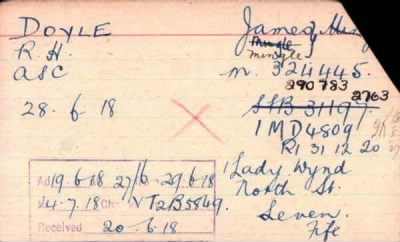 DOYLE
James
Mingle
Mingle
R.H.
ASC
M. 324445.
290783
28. 6. 18
SHB 31197. 2763
1MD4809
R1 31 12 20
Ad 19.6.18 27/6 29.6.18
V4.7.18 Ch- VT2B5849.
Received 20.6.18
1 Lady Wynd
North St.
Leven.
Fife